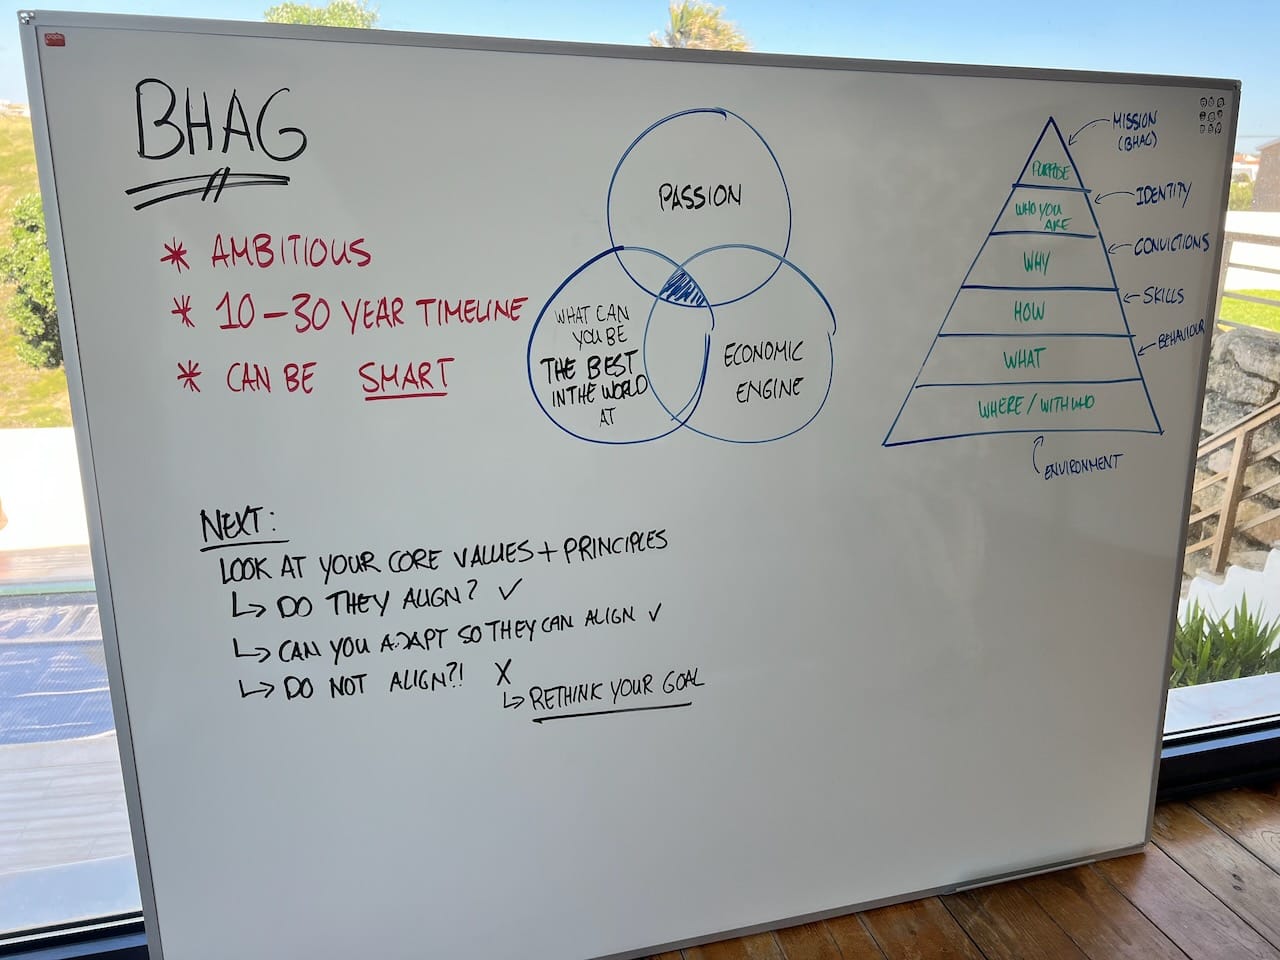 BHAG
* AMBITIOUS
* 10-30 YEAR TIMELINE
* CAN BE SMART
PASSION
WHAT CAN
YOU BE
THE BEST
IN THE WORLD
AT
ECONOMIC
ENGINE
MISSION
(BHAG)
PURPOSE
IDENTITY
WHO YOU
ARE
CONVICTIONS
WHY
SKILLS
HOW
BEHAVIOUR
WHAT
WHERE / WITH WHO
ENVIRONMENT
NEXT:
LOOK AT YOUR CORE VALUES + PRINCIPLES
↳ DO THEY ALIGN? ✓
↳ CAN YOU ADAPT SO THEY CAN ALIGN ✓
↳ DO NOT ALIGN?! X
↳ RETHINK YOUR GOAL